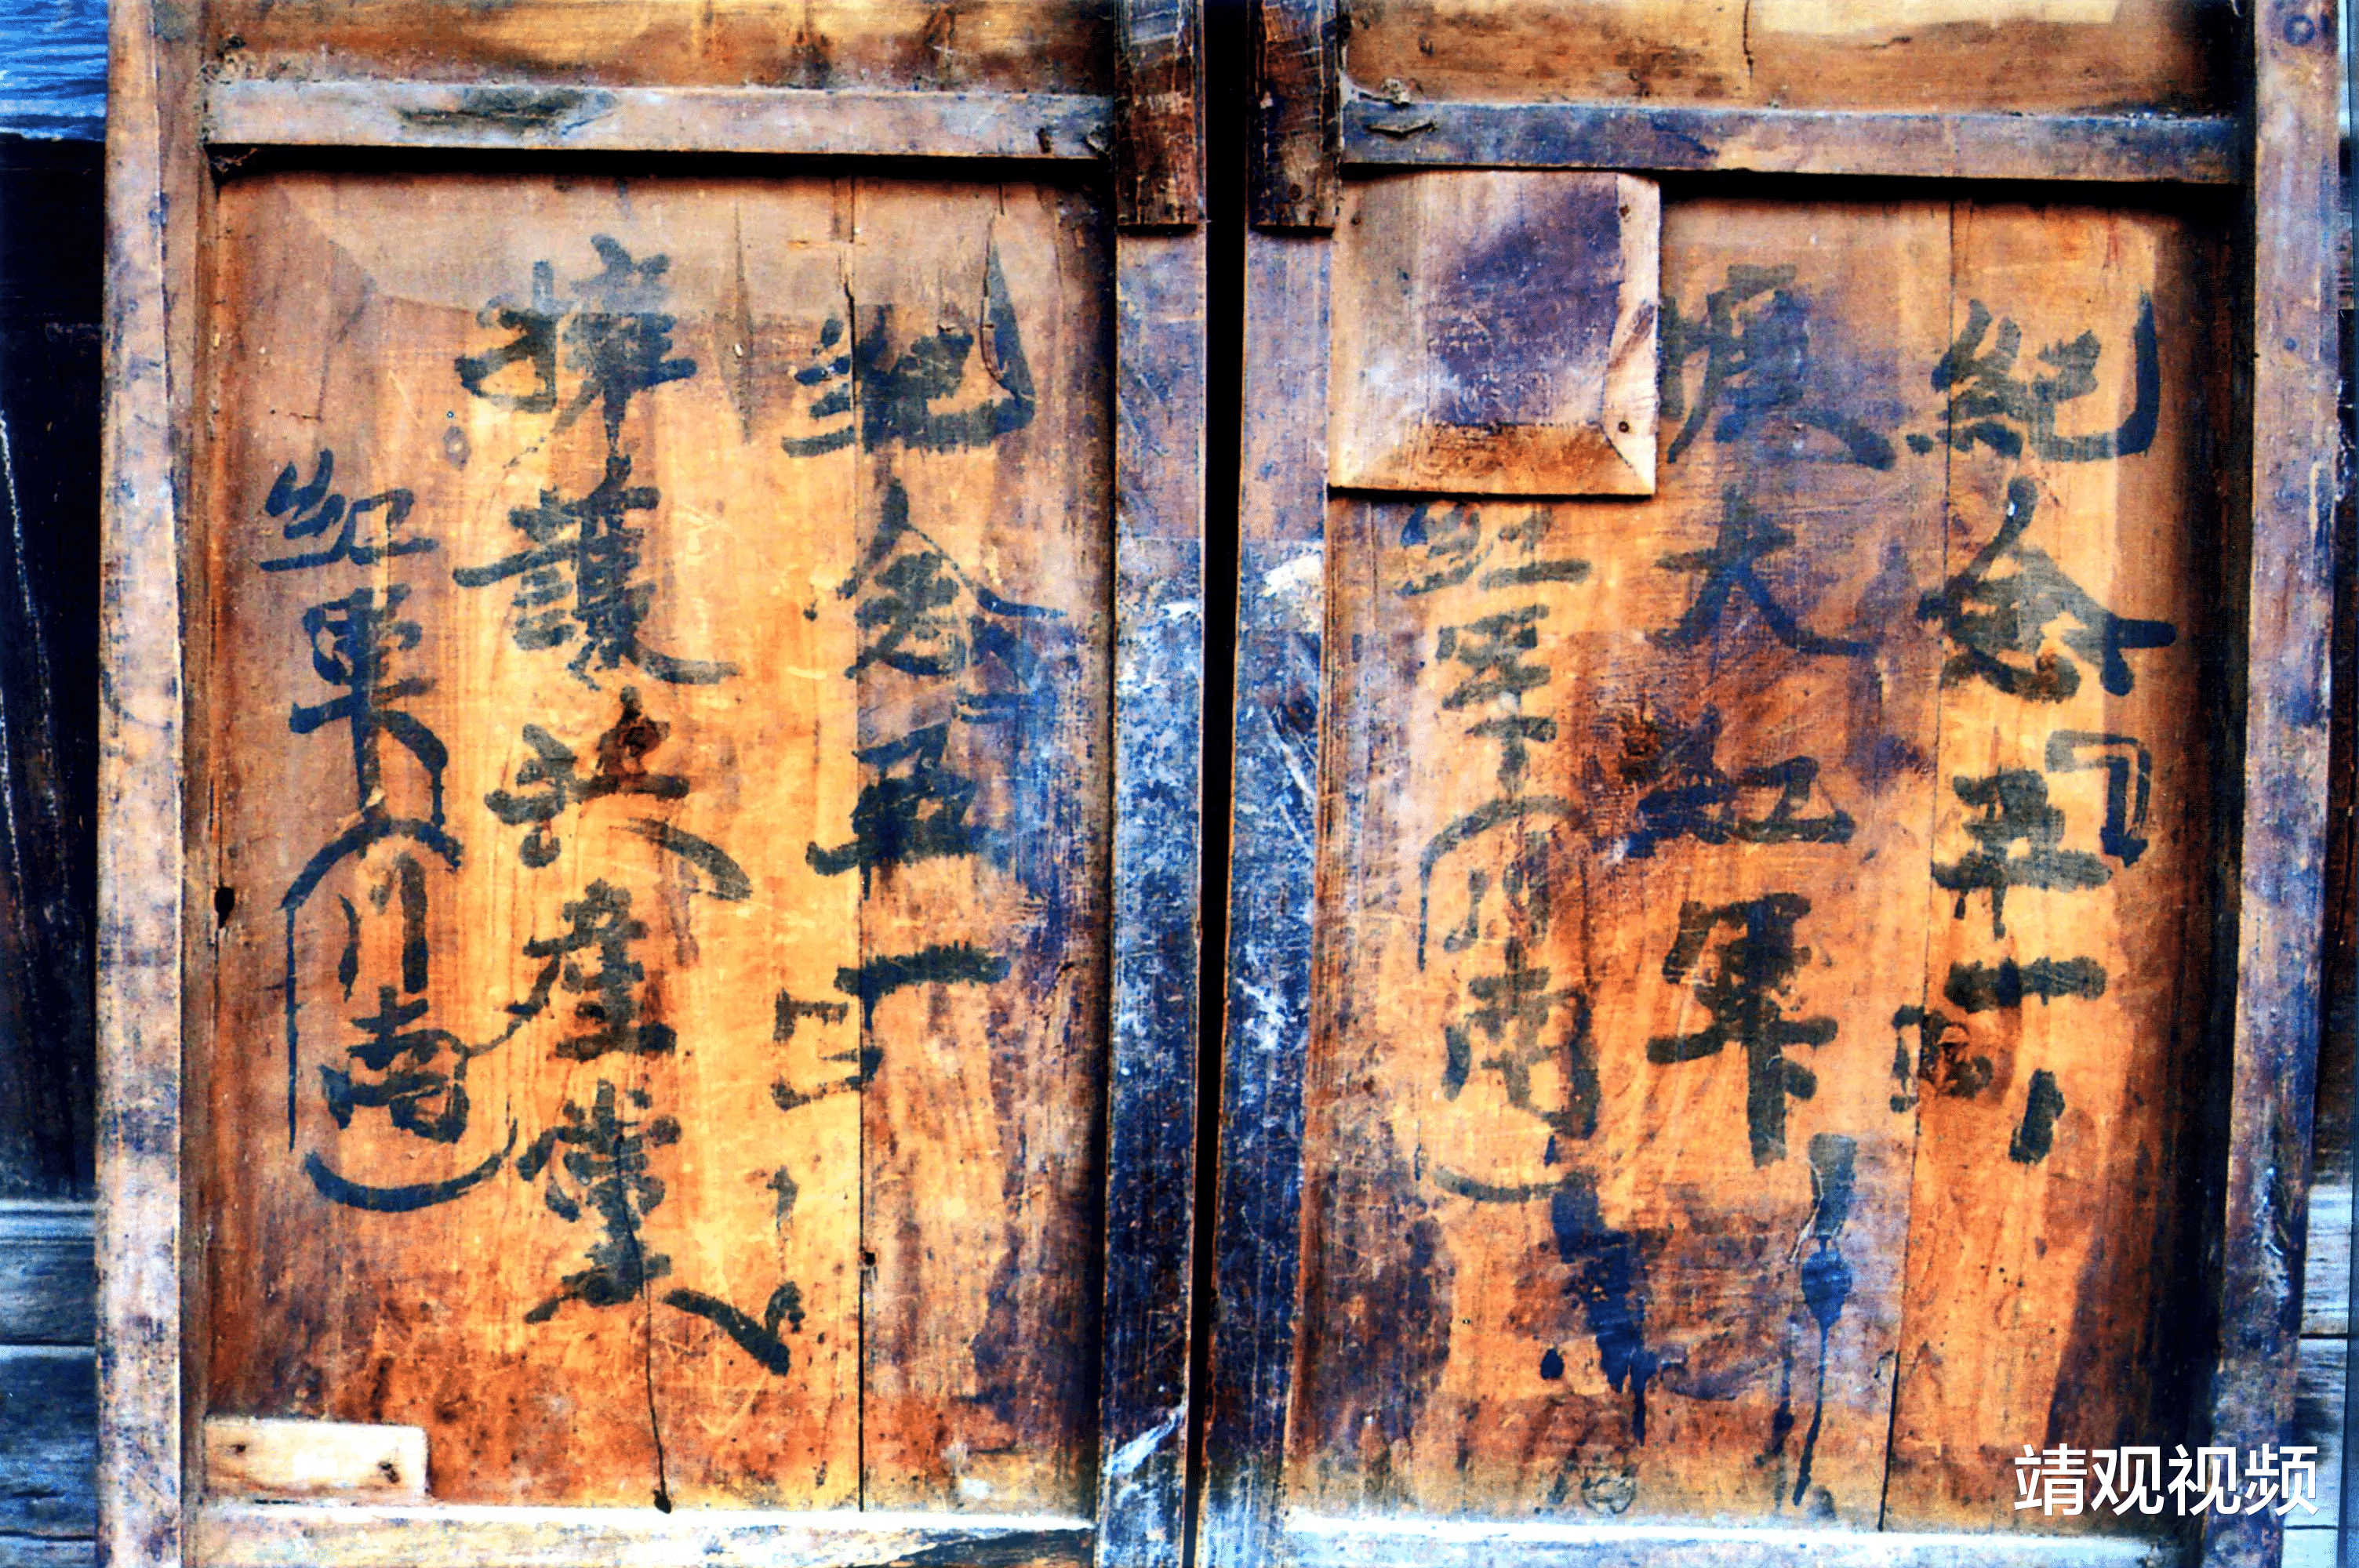 紀念五一
擴大紅軍
紅軍(川南)
紀念五一
擁護共產黨
紅軍(川南)
靖观视频